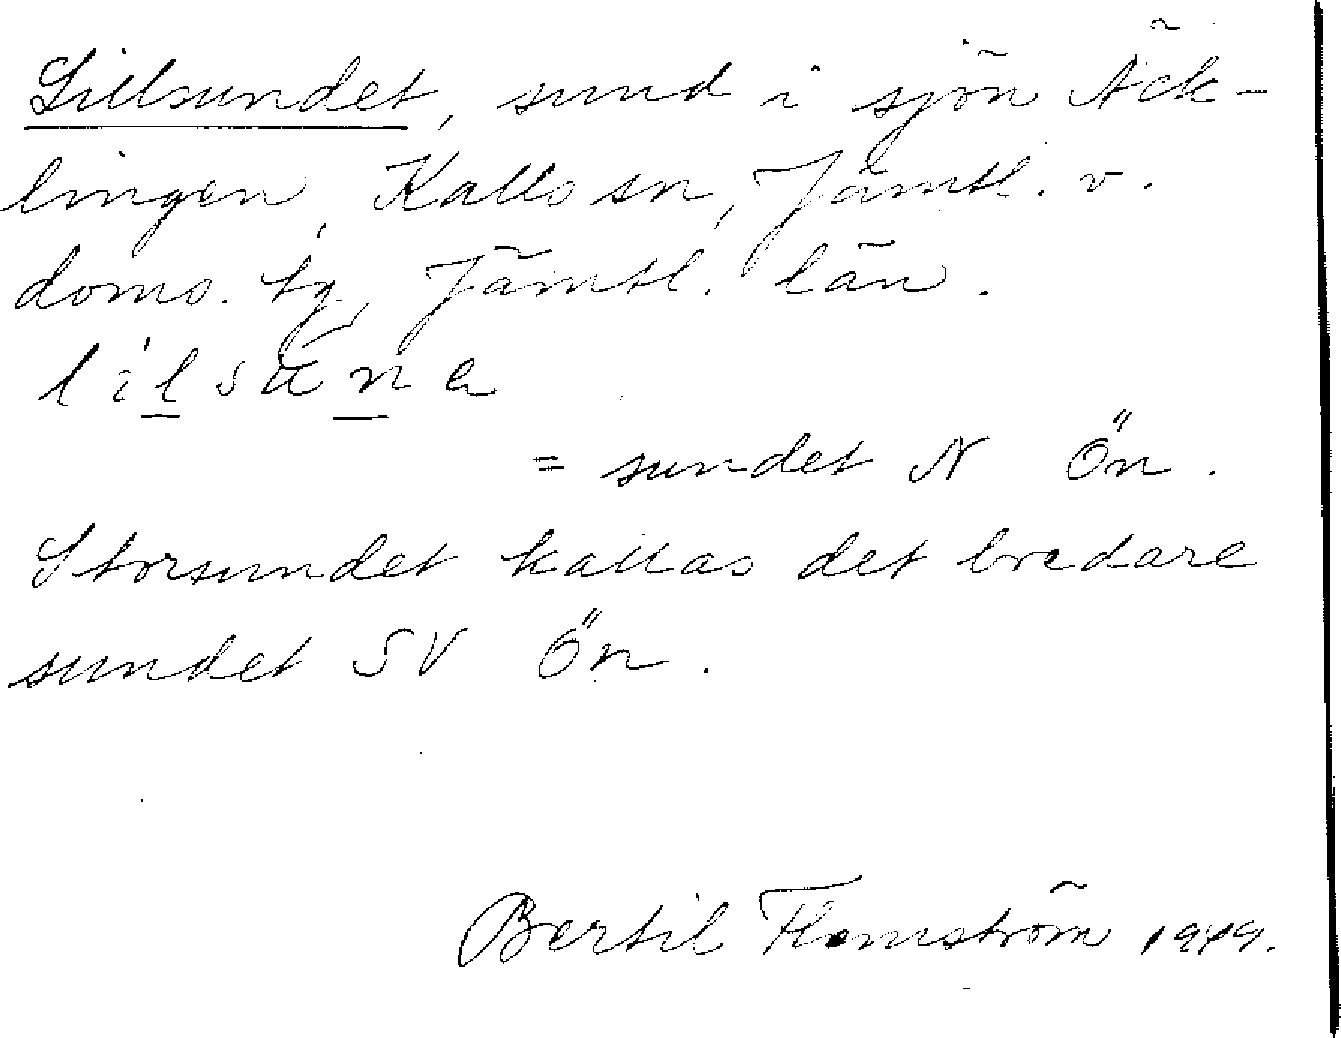 Lillsundet, sund i sjön Äck-
lingen, Kalls sn, Jämtl. v.
doms. tg, Jämtl. län.
lilsúna
= sundet N Ön.
Storsundet kallas det bredare
sundet SV Ön.
Bertil Flemström 1949.